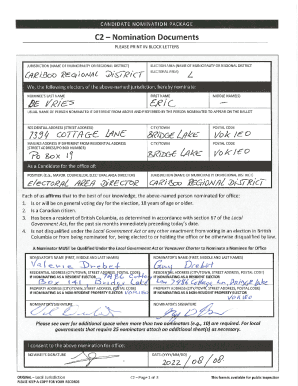 CANDIDATE NOMINATION PACKAGE
C2 – Nomination Documents
PLEASE PRINT IN BLOCK LETTERS
JURISDICTION (NAME OF MUNICIPALITY OR REGIONAL DISTRICT)
ELECTION AREA (NAME OF MUNICIPALITY OR REGIONAL DISTRICT
ELECTORAL AREA)
CARIBOO REGIONAL DISTRICT
L
We, the following electors of the above-named jurisdiction, hereby nominate:
NOMINEE'S LAST NAME
FIRST NAME
MIDDLE NAME(S)
DE VRIES
ERIC
–
USUAL NAME OF PERSON NOMINATED IF DIFFERENT FROM ABOVE AND PREFERRED BY THE PERSON NOMINATED TO APPEAR ON THE BALLOT
RESIDENTIAL ADDRESS (STREET ADDRESS)
CITY/TOWN
POSTAL CODE
7394 COTTAGE LANE
BRIDGE LAKE
V0K1E0
MAILING ADDRESS IF DIFFERENT FROM RESIDENTIAL ADDRESS
(STREET ADDRESS/PO BOX NUMBER)
CITY/TOWN
POSTAL CODE
PO BOX 19
BRIDGE LAKE
V0K1E0
As a Candidate for the office of:
ELECTORAL AREA DIRECTOR
CARIBOO REGIONAL DISTRICT
Each of us affirms that to the best of our knowledge, the above-named person nominated for office:
1. Is or will be on general voting day for the election, 18 years of age or older.
2. Is a Canadian citizen.
3. Has been a resident of British Columbia, as determined in accordance with section 67 of the Local
Government Act, for the past six months immediately preceding today's date.
4. Is not disqualified under the Local Government Act or any other enactment from voting in an election in British
Columbia or from being nominated for, being elected to or holding the office or be otherwise disqualified by law.
A Nominator MUST be Qualified under the Local Government Act or Vancouver Charter to Nominate a Nominee for Office
NOMINATOR'S NAME (FIRST, MIDDLE AND LAST NAMES)
NOMINATOR'S NAME (FIRST, MIDDLE AND LAST NAMES)
Valerie Drebet
Drebet
Bridge Lake
V0K1E0
NOMINATOR'S SIGNATURE
NOMINATOR'S SIGNATURE
Please see over for additional space when more than two nominators (e.g., 10) are required. For local
governments that require 25 nominators attach an additional sheet(s) as necessary.
I consent to the above nomination for office.
NOMINEE'S SIGNATURE
DATE (YYYY/MM/DD)
2022/08/08
ORIGINAL – Local Jurisdiction
C2 – Page 1 of 3
This form is available for public inspection
PLEASE KEEP A COPY FOR YOUR RECORDS